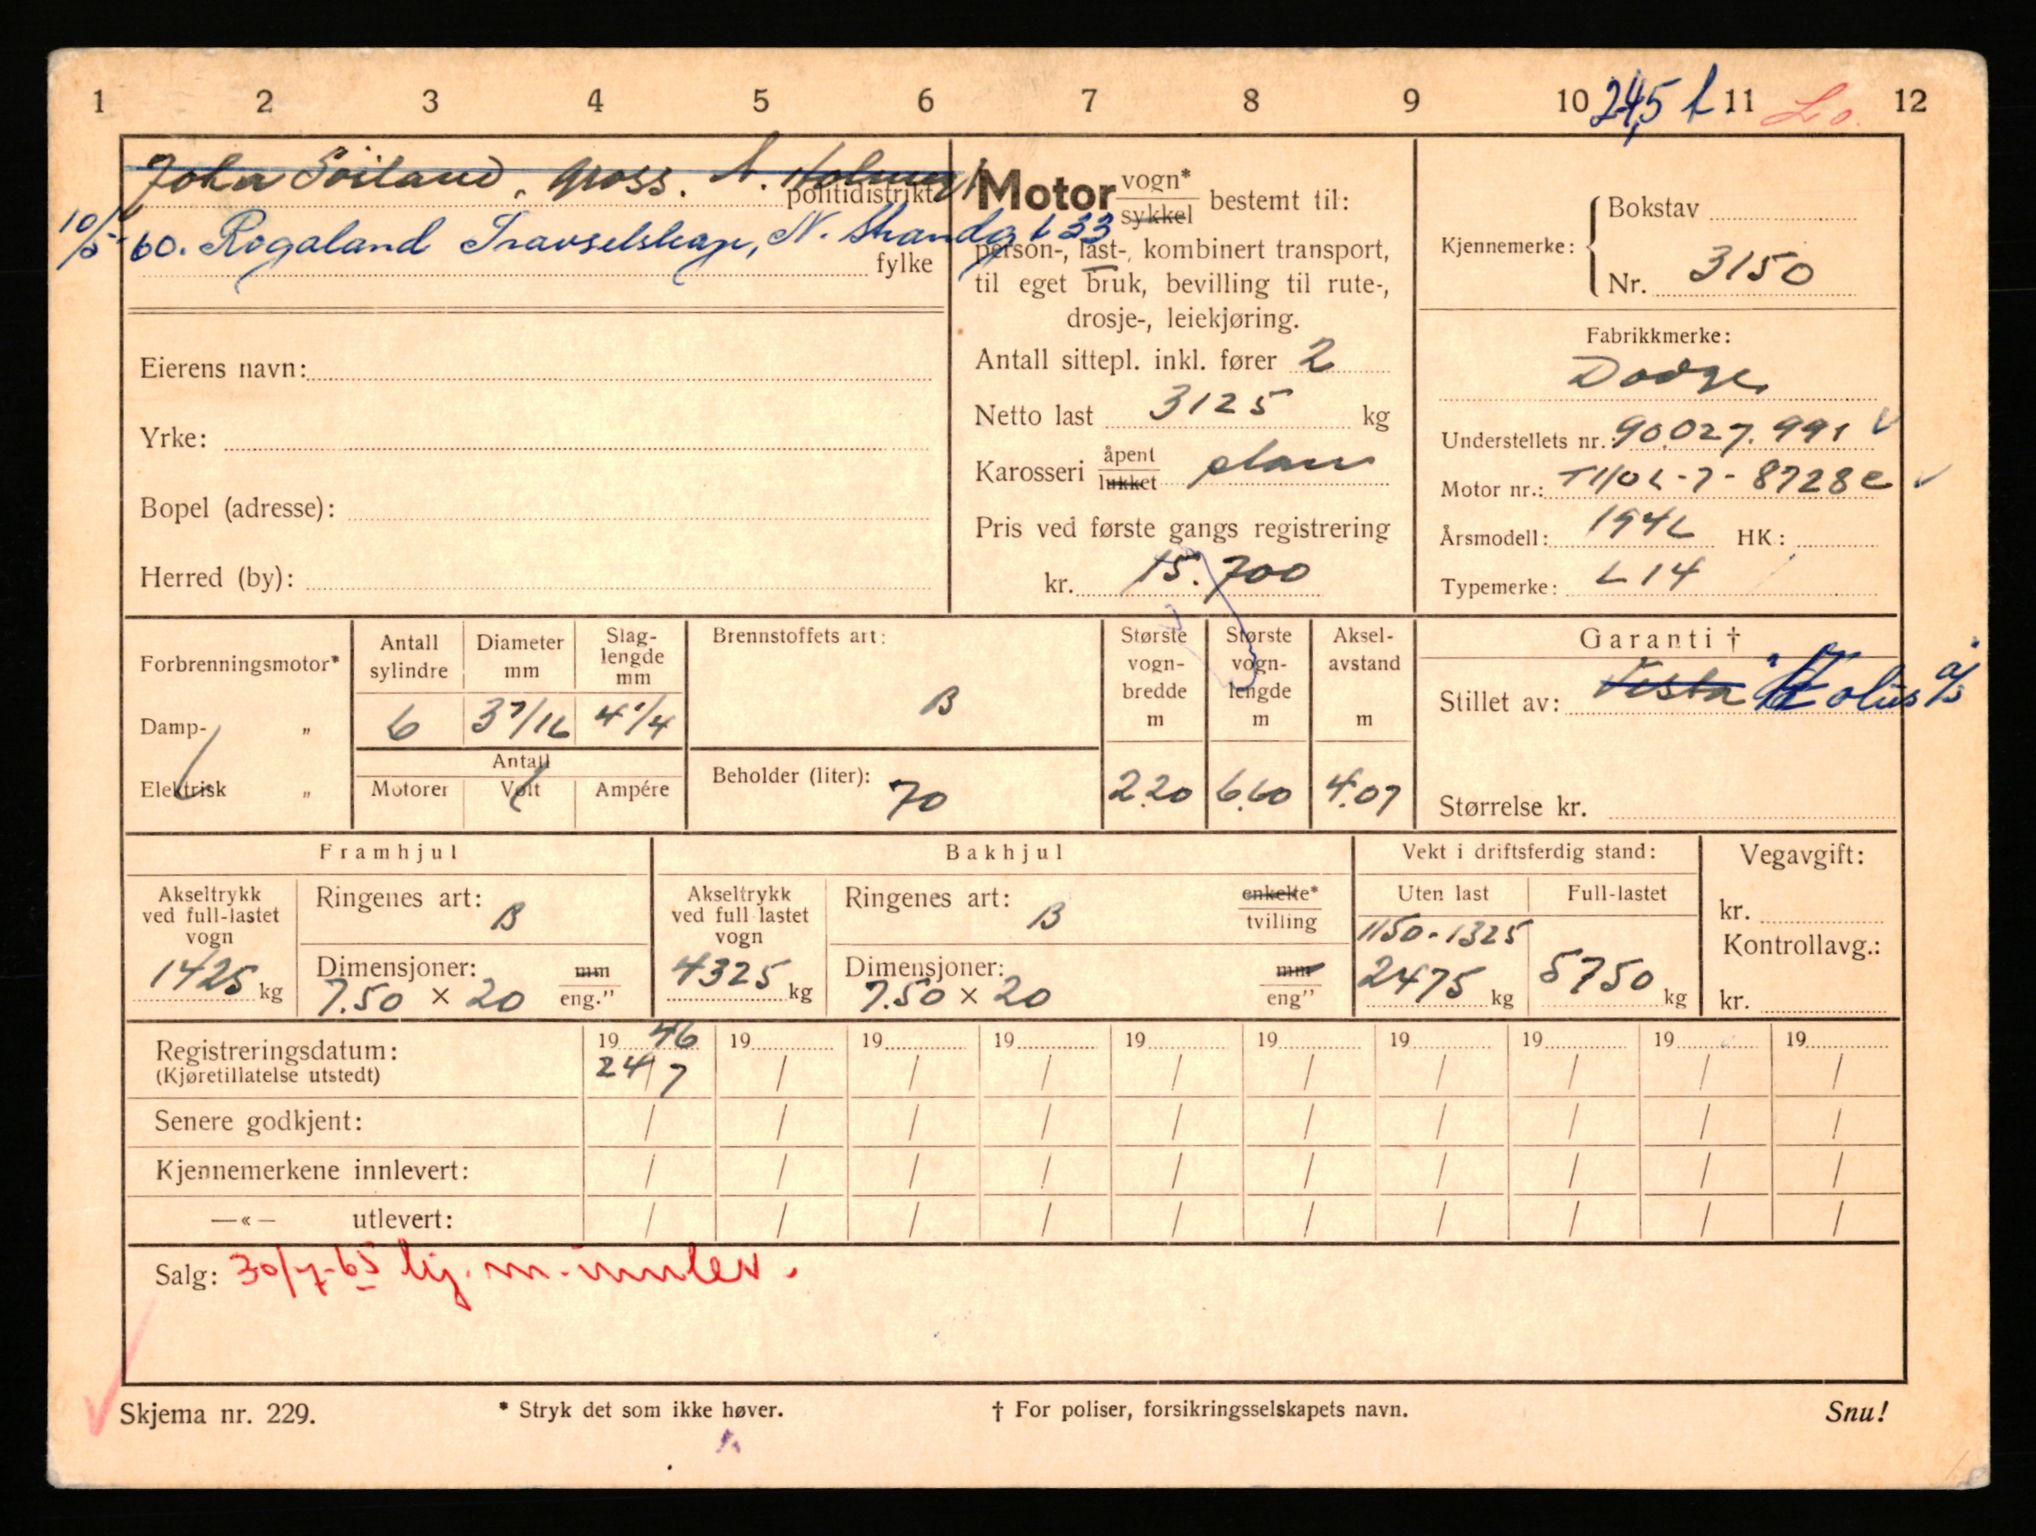 1 2 3 4 5 6 7 8 9 10 24,5 t 11 Lo. 12
John Soiland, gross. N. Holmeg
politidistrikt
10/5-60. Rogaland Travselskap, N. Strandg t 33
fylke
Eierens navn:
Yrke:
Bopel (adresse):
Herred (by):
Motor vogn* sykkel bestemt til:
person-, last-, kombinert transport,
til eget bruk, bevilling til rute-,
drosje-, leiekjøring.
Antall sittepl. inkl. fører 2
Netto last 3125 kg
Karosseri åpent lukket plan
Pris ved første gangs registrering
kr. 15.700
Kjennemerke: Bokstav
Nr. 3150
Fabrikkmerke:
Dodge
Understellets nr. 90.027.991
Motor nr.: T110L-7-8728c
Årsmodell: 1946 HK:
Typemerke: L 14
Forbrenningsmotor*
Damp- "
Elektrisk "
Antall sylindre
6
Diameter mm
3 7/16
Slag-lengde mm
4 1/4
Antall
Motorer Volt Ampére
Brennstoffets art:
B
Beholder (liter):
70
Største vogn-bredde m
2.20
Største vogn-lengde m
6.60
Aksel-avstand m
4.07
Garanti †
Stillet av: Vesta Æolus a/s
Størrelse kr.
Framhjul
Akseltrykk ved full-lastet vogn
1425 kg
Ringenes art:
B
Dimensjoner: mm
7.50 × 20 eng."
Bakhjul
Akseltrykk ved full-lastet vogn
4325 kg
Ringenes art: enkelte*
B tvilling
Dimensjoner: mm
7.50 × 20 eng"
Vekt i driftsferdig stand:
Uten last Full-lastet
1150-1325
2475 kg 5750 kg
Vegavgift:
kr.
Kontrollavg.:
kr.
19 46 19 19 19 19 19 19 19 19 19
Registreringsdatum:
(Kjøretillatelse utstedt) 24/7 / / / / / / / / /
Senere godkjent: / / / / / / / / / /
Kjennemerkene innlevert: / / / / / / / / / /
—«— utlevert: / / / / / / / / / /
Salg: 30/7-65 kj. m. innlev.
Skjema nr. 229. * Stryk det som ikke høver. † For poliser, forsikringsselskapets navn. Snu!